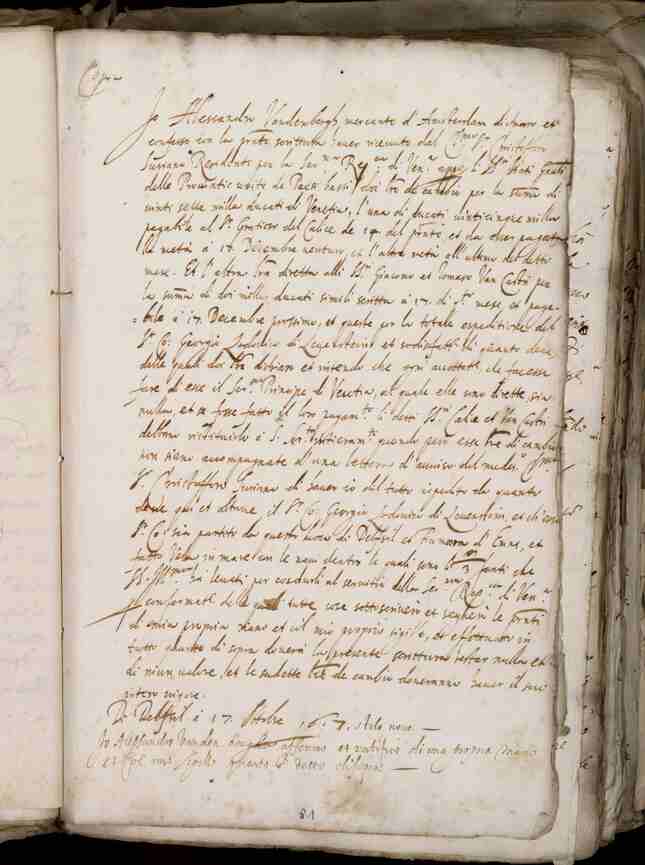 Copia
Io Alessandro Vandenbergh mercante d'Amsterdam dichiaro et
confesso con la pnte scrittura haver ricevuto dal Cl.mo Sr Cristofforo
Suriano Residente per la Ser.ma Rep.ca di Ven.a li Ill.mi Stati Gnali
delle Provintie unite de Paesi bassi, doi lre de cambio per la summa di
vinti sette milla ducati di Venetia, l'una di ducati vinticinque milla
pagabile al Sr del Calice de 14 del pnte, et da esser pagata
la metà à 16 Decembre venturo, et l'altra metà all ultimo del detto
mese. Et l'altra lra diretta alli Sri Giacomo et Tomaso Van Castre per
la summa di doi milla ducati simili scritta à 17. di mese et paga-
bile à 17. Decembre prossimo, et queste per la totale espeditione del
Sr Co: Georgio Lodovico di Leuenstein et sodisfatt.e di quanto deve,
delle quali doi lre dechiaro et intendo che ogni che facesse
fare di esse il Ser.mo Principe di Venetia, al quale elle sono dirette, sia
nullo, et se fosse fatto il loro pagam.to li detti Sri Calice et Van Castre
debbano restituirlo à S. Ser.tà quando però esse lre di cambio
non siano accompagnate d'una lettera d'avviso del medes.o Cl.mo
Sr Cristofforo Suriano di haver io del tutto ispedito da quanto
deve qui et altrove il Sr Co: Georgio Lodovico di Leuenstein, et ch'esso
Sr Co: sia partito da questi luoghi di Delfsil et Rumor di Ems, et
fatto Vela in mare con le navi dentro le quali sono li 3 fanti che
S.S. Ill.ma hà levati per condurli al servitio della Ser.ma Rep.ca di Ven.a
in conformità delle quali tutte cose sottoscriverò et segnerò le pnti
di mia propria mano et col mio proprio sigillo, et effettuato in
tutto quanto di sopra doverà la presente scrittura restar nulla et
di niun valore, et le sudette lre de cambio doveranno haver il suo
intero vigore.
Di Delfsil à 17. Ottobre stilo novo.
Io Alessandro Vanden Berghe affermo et ratifico di mia propria mano
et col mio sigillo quanto è detto di sopra
81